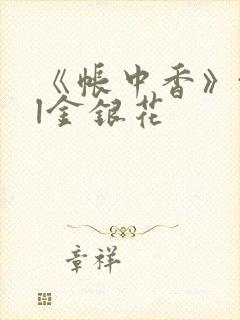 《帐中香》
|金银花
章祥